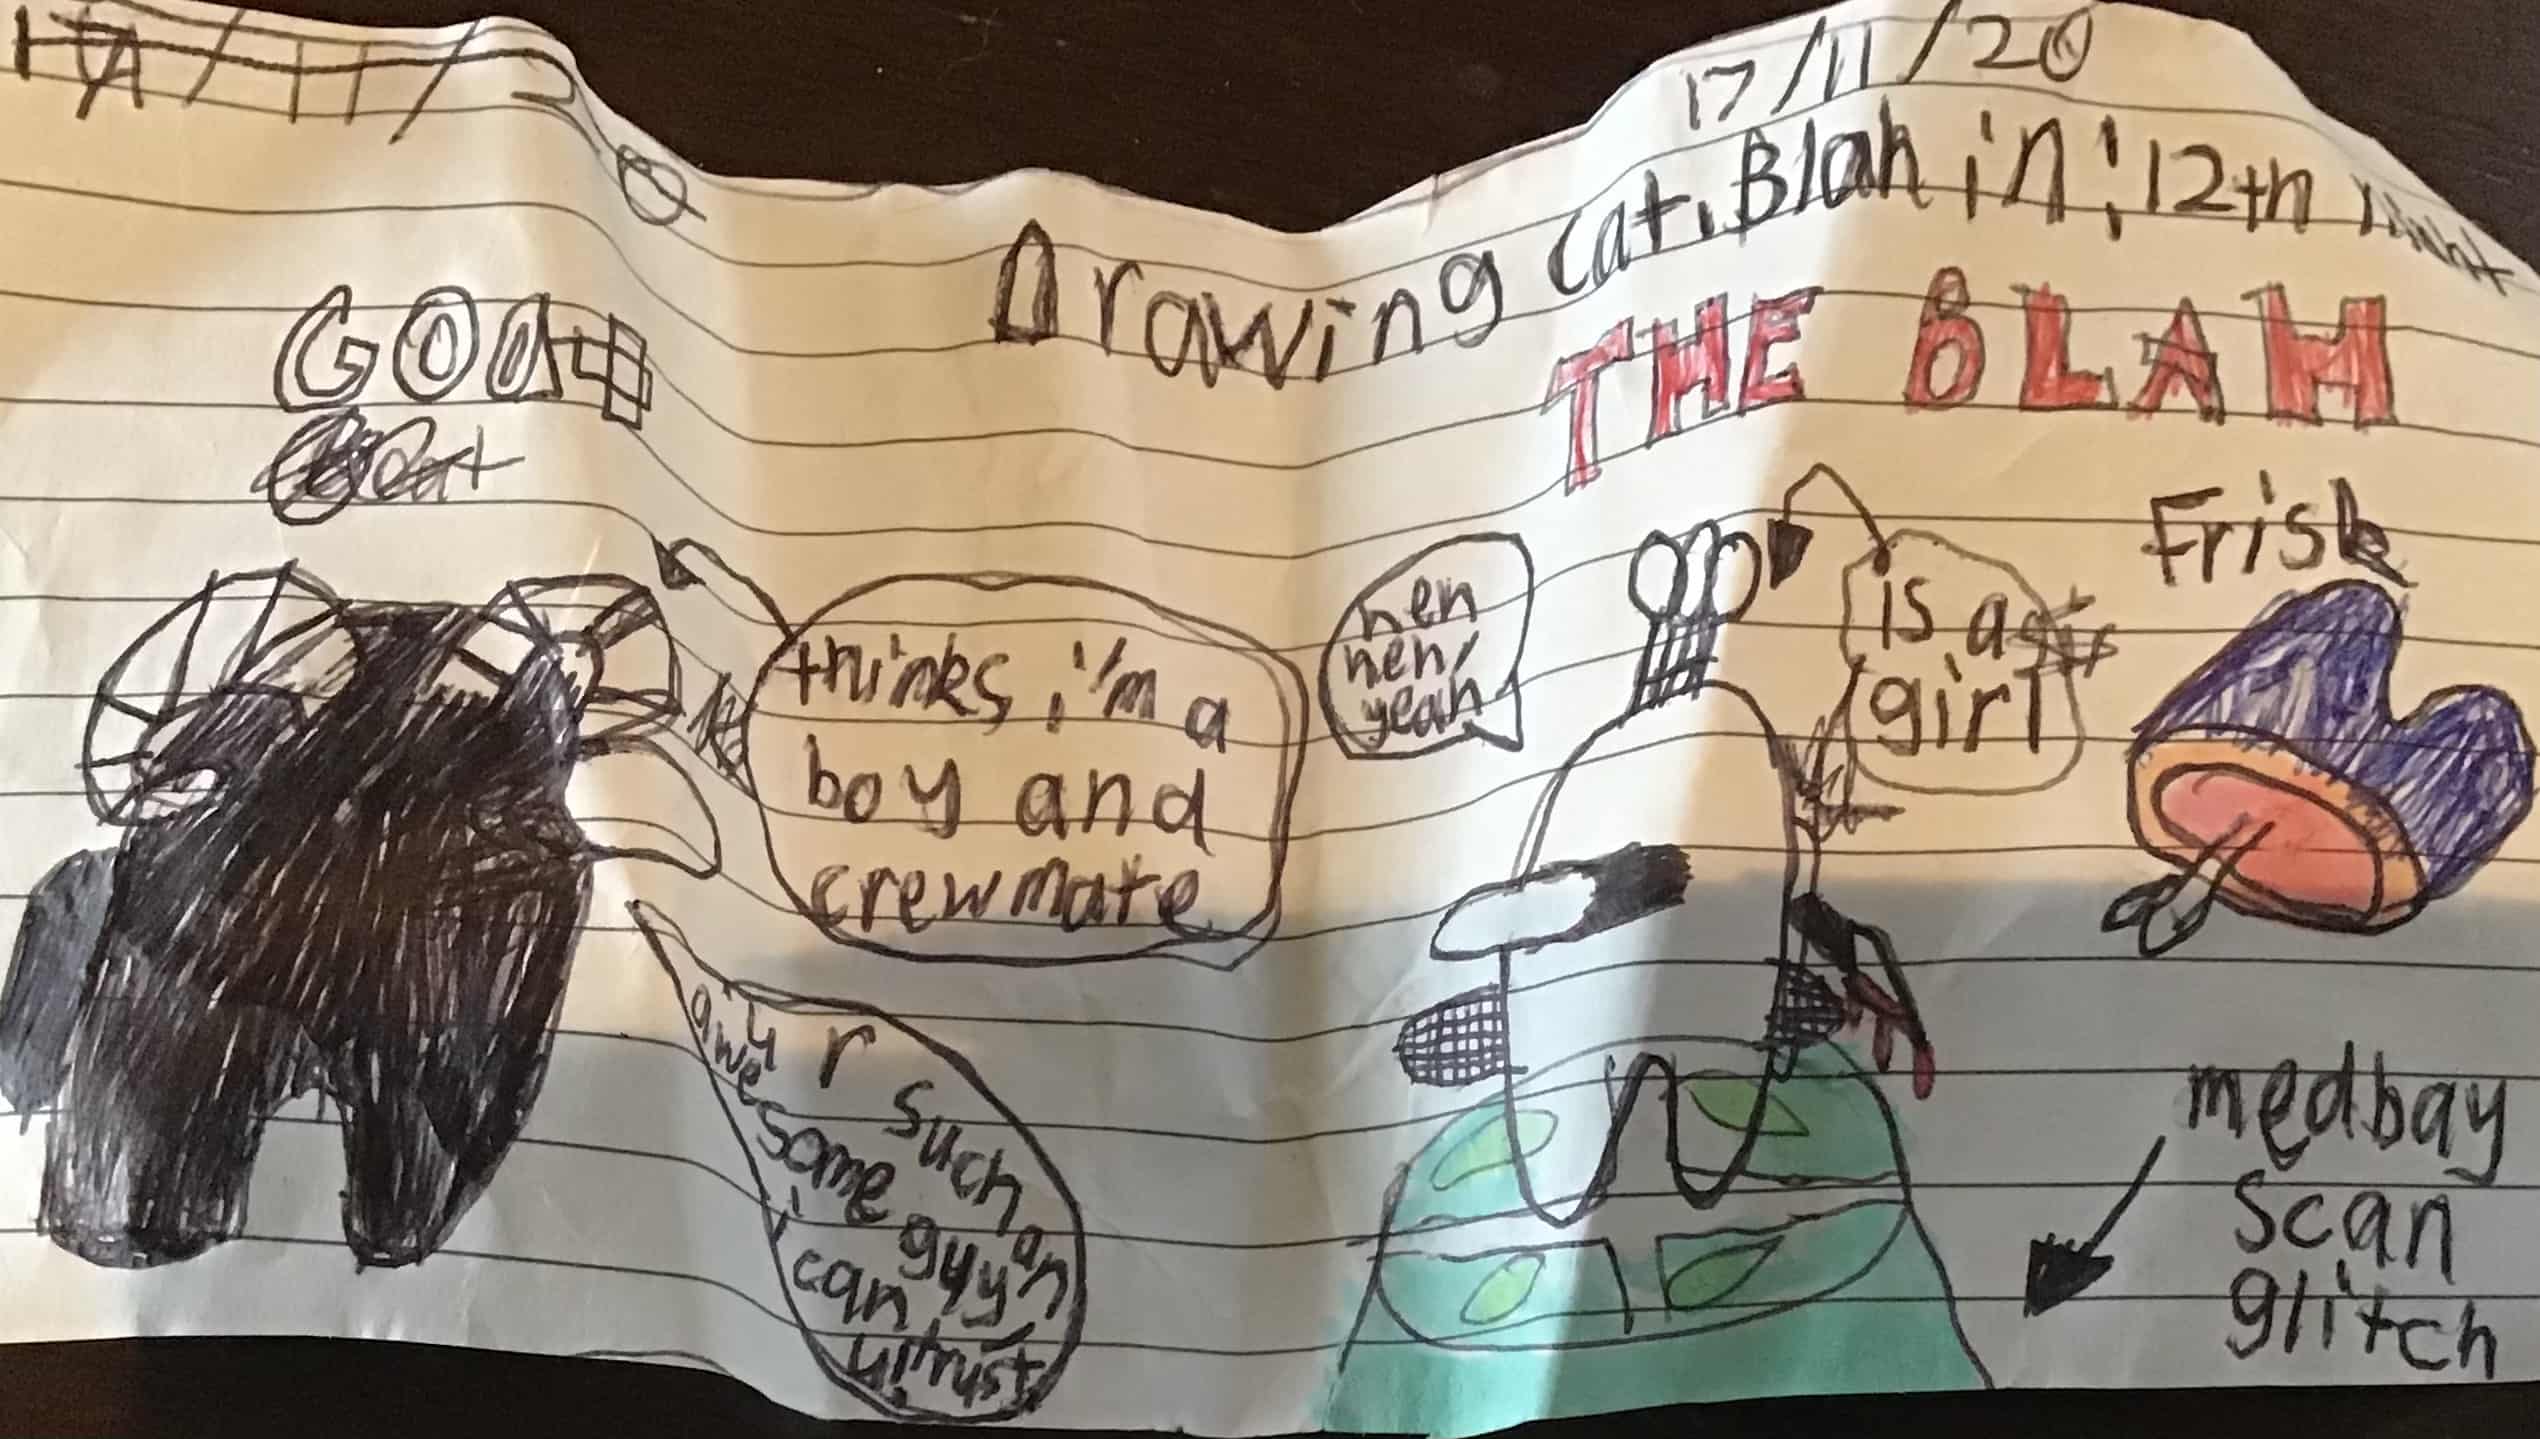 17/11/20
Drawing cat. Blah in: 12th
THE BLAH
GOAt
thinks i'm a
boy and
crewmate
heh
heh,
yeah
is a
girl
Frisk
u r such an
awesome guyyn
i can
trust
medbay
scan
glitch